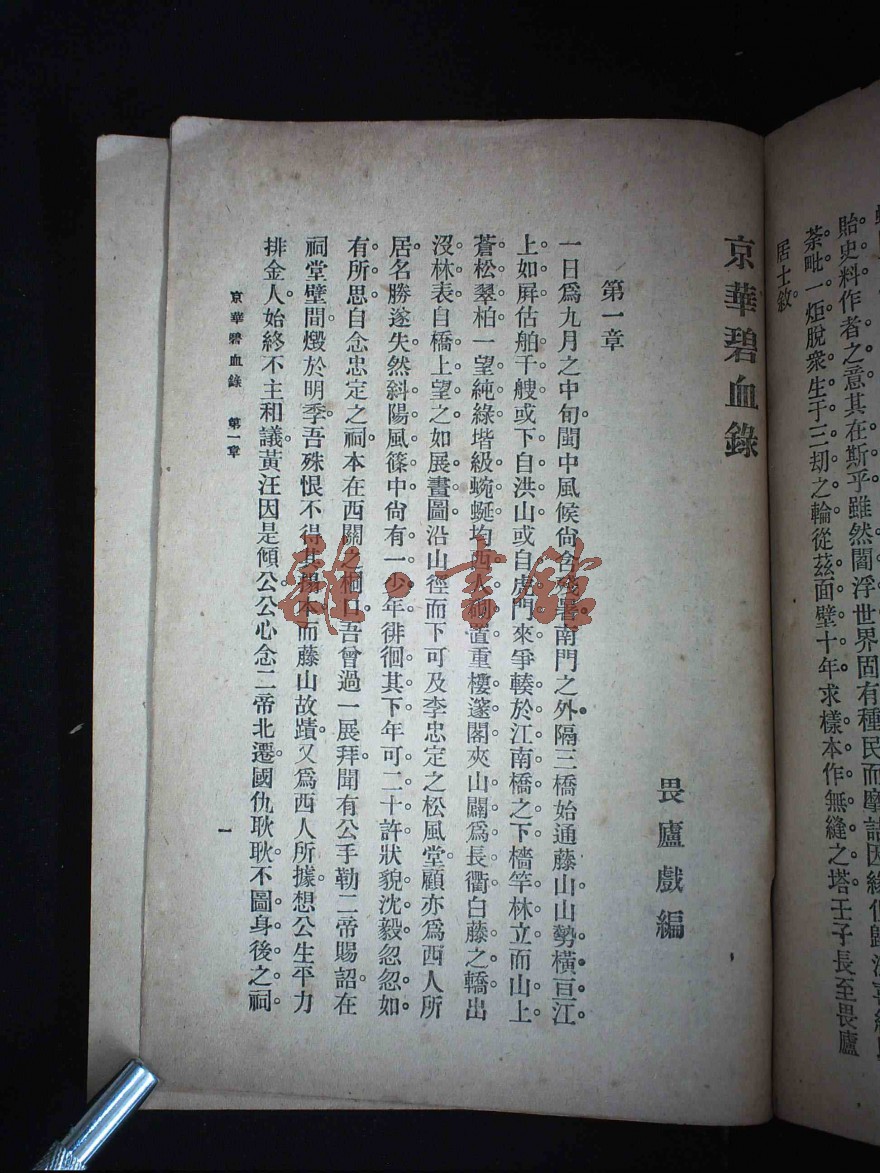 貽史料作者之意其在斯乎雖然閻浮世界固有種民而摩詰因緣但歸
荼毗一炬脫衆生于三刧之輪從茲面壁十年求樣本作無縫之塔壬子長至畏廬
居士敘
京華碧血錄
畏廬戲編
第一章
一日爲九月之中旬閩中風候尙含殘暑南門之外隔三橋始通藤山山勢橫亘江
上如屏估舶千艘或下自洪山或自虎門來爭輳於江南橋之下檣竿林立而山上
蒼松翠柏一望純綠堦級蜿蜒均西人砌置重樓邃閣夾山闢爲長衢白藤之轎出
沒林表自橋上望之如展畫圖沿山徑而下可及李忠定之松風堂顧亦爲西人所
居名勝遂失然斜陽風篠中尙有一少年徘徊其下年可二十許狀貌沈毅忽忽如
有所思自念忠定之祠本在西關之桐口吾曾過一展拜聞有公手勒二帝賜詔在
祠堂壁間燬於明季吾殊恨不得其搨本而藤山故蹟又爲西人所據想公生平力
排金人始終不主和議黃汪因是傾公公心念二帝北遷國仇耿耿不圖身後之祠
京華碧血錄 第一章
一
雜·書館